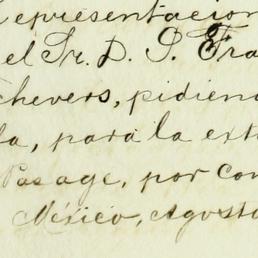 representacion
el Sr. D. S. Fra
chevers, pidien
la, para la ext
Pasage, por con
México, Agosto